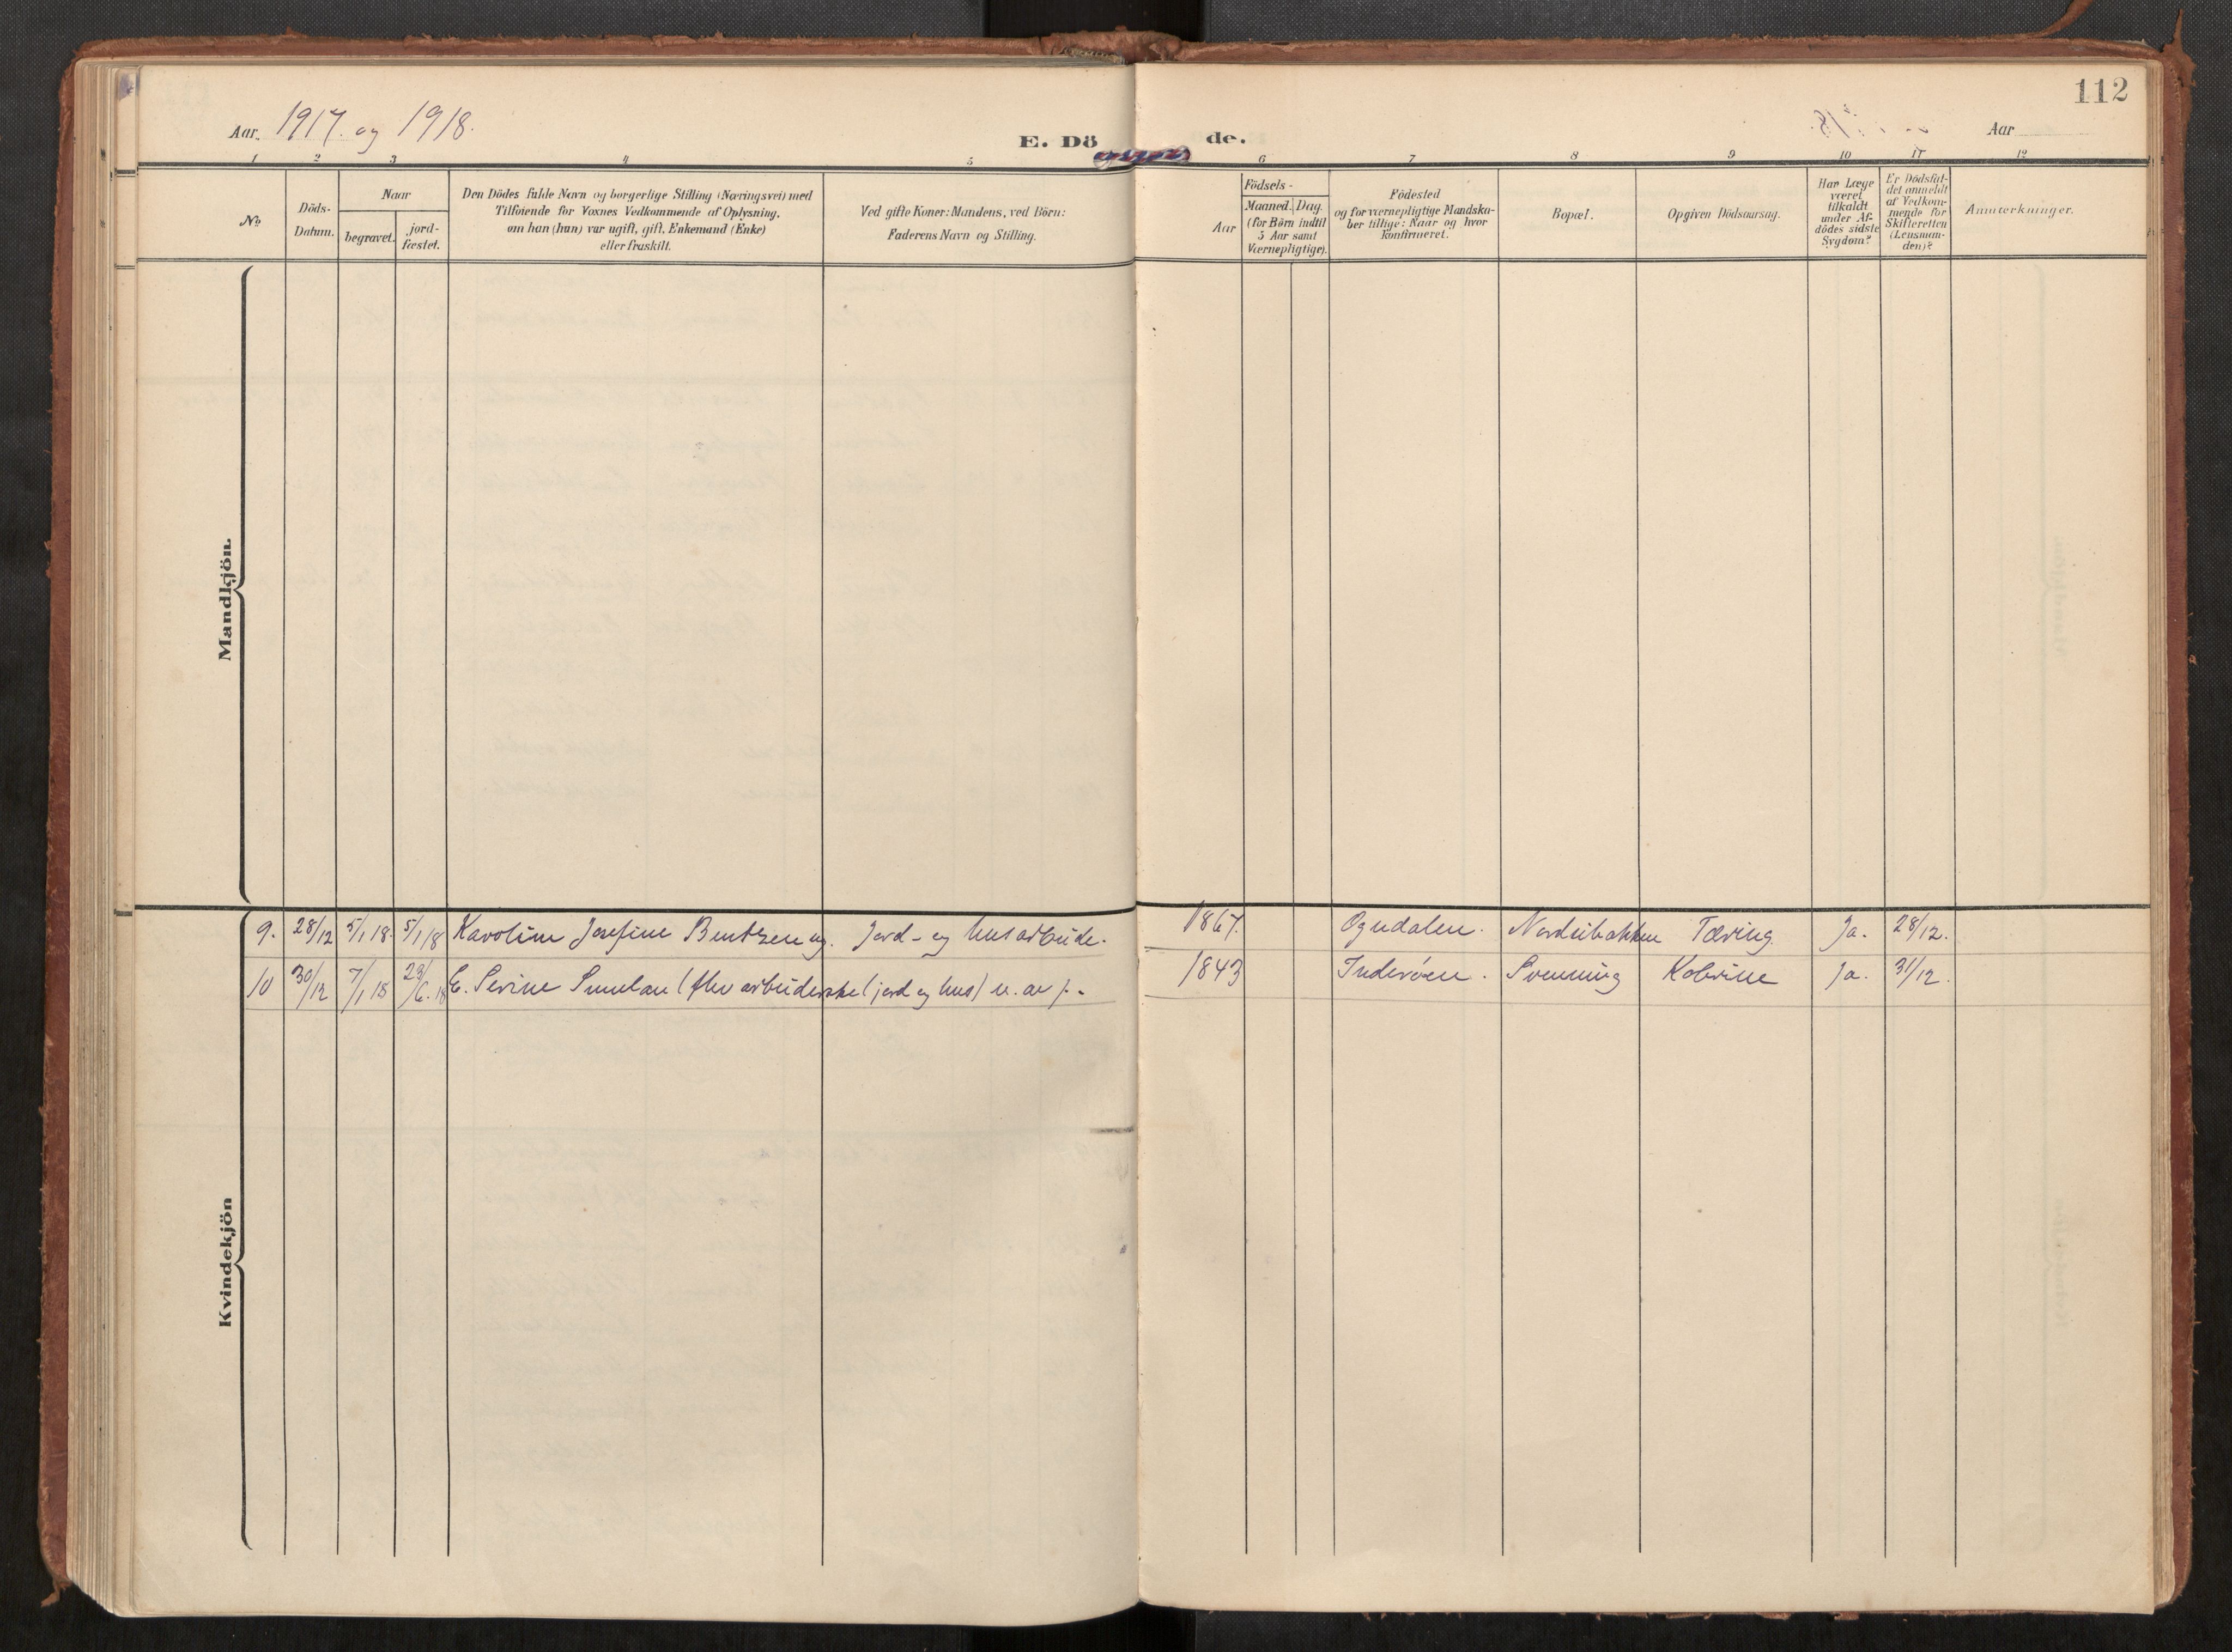 112
Aar 1917. og 1918.
E. Döde.
Aar
1 2 3 4 5 6 7 8 9 10 11 12
No
Döds-Datum.
Naar
begravet.
jord-fæstet.
Den Dödes fulde Navn og borgerlige Stilling (Næringsvei) med
Tilföiende for Voxnes Vedkommende af Oplysning,
om han (hun) var ugift, gift, Enkemand (Enke)
eller fraskilt.
Ved gifte Koner: Mandens, ved Börn:
Faderens Navn og Stilling.
Födsels-
Aar
Maaned. Dag.
(for Börn indtil
5 Aar samt
Værnepligtige).
Födested
og for værnepligtige Mandska-
ber tillige: Naar og hvor
konfirmeret.
Bopæl.
Opgiven Dödsaarsag.
Har Læge
været
tilkaldt
under Af-
dödes sidste
Sygdom?
Er Dödsfal-
det anmeldt
af Vedkom-
mende for
Skifteretten
(Lensman-
den)?
Anmærkninger.
Mandkjön.
Kvindekjön
9. 28/12 5/1 18. 5/1 18 Karoline Josefine Bentzen ug. Jord- og husarbeide. 1867. Ogndalen. Nordsibakken Tæring. Ja. 28/12.
10 30/12 7/1 18 23/6. 18 E. Serine (fhv arbeiderske (jord og hus) u. av f. 1843 Inderöen. Svenning Ja. 31/12.